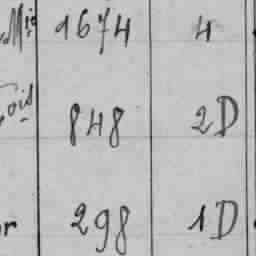 Mis 1674 4
ois 848 2D
r 298 1D